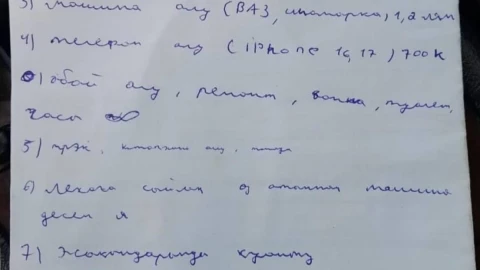 3) машина алу (ВАЗ, иномарка, 1,2 млн
4) телефон алу (iPhone 16, 17) 700к
0) обой алу, ремонт, ванна, туалет,
часы
5) алу,
6) Лехага сыйлық өз атынан машина
десең я
7) Жақындарыңды қуаныш